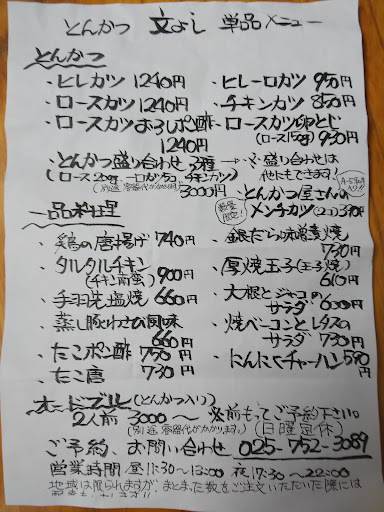 とんかつ 文よし 単品メニュー
とんかつ
・ヒレカツ 1240円
・ヒレ一口カツ 950円
・ロースカツ 1240円
・チキンカツ 850円
・ロースカツおろしポン酢 1240円
・ロースカツ卵とじ (ロース150g) 950円
・とんかつ盛り合わせ 3種→
(ロース200g 一口かつ5コ チキンカツ)
(別途 容器代がかかります) 3000円
盛り合わせは
他にもできます!
・とんかつ屋さんの
数量限定!
メンチカツ(2コ)
一品料理
・鶏の唐揚げ 740円
・銀だら味噌漬焼 730円
・タルタルチキン
(チキン南蛮) 900円
・厚焼玉子(玉子焼) 610円
・手羽先塩焼 660円
・大根とジャコの
サラダ 600円
・蒸し豚わさび風味 660円
・焼ベーコンとレタスの
サラダ 730円
・たこポン酢 750円
・にんにくチャーハン 590円
・たこ唐 730円
オードブル(とんかつ入り)
2人前 3000〜 ※前もってご予約下さい
(別途 容器代がかかります。) (日曜定休)
ご予約、お問い合わせ 025-752-3089
営業時間 昼11:30〜13:00 夜17:30〜22:00
地域は限られますが、まとまった数をご注文いただいた際には